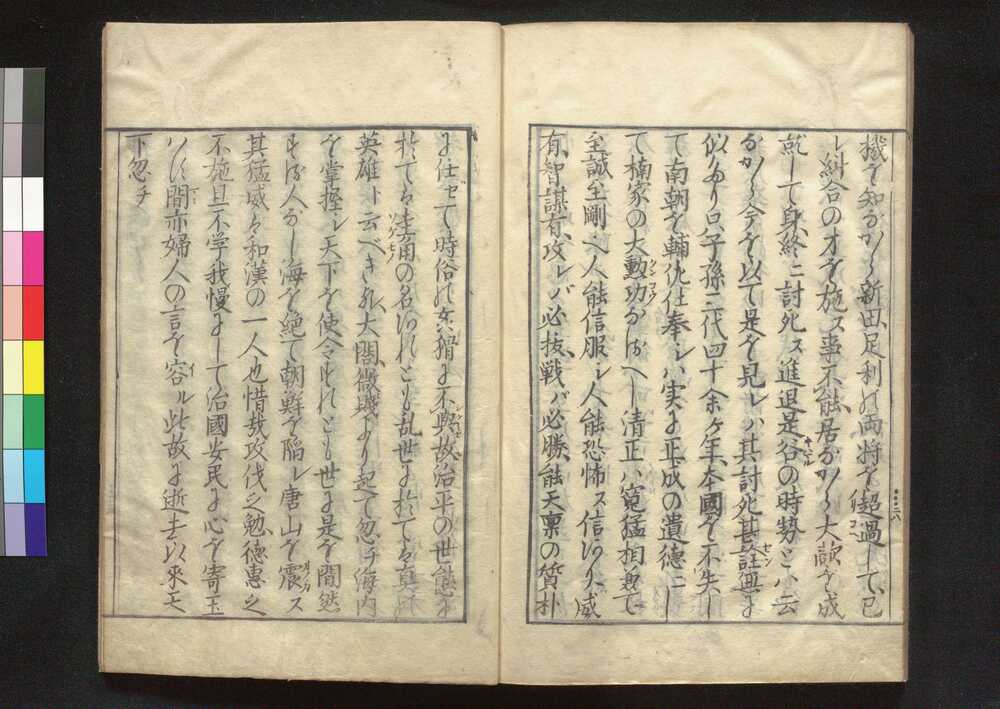 機を知ながら新田足利の両将を超過して已
レ糾合の才を施ス事不能居ながら大敵を成
就して身終ニ討死ス進退是谷の時勢とハ云
ながら今を以て是を見レハ其討死甚詮無に
似たり只子孫三代四十余ケ年本國を不失し
て南朝を輔佐仕奉シハ実に正成の遺徳にし
て楠家の大勲功なるべし清正ハ寛猛相兼て
至誠至剛ヘ人能信服シ人能恐怖ス信あり威
有智謀有攻レバ必抜戦バ必勝能天禀の質朴
に任ゼて時俗の奸猾に不與故治平の世態に
於てハ圭角の名あれとも乱世に於てハ真の
英雄ト云べき乎大閤微賤より起て忽チ海内
を掌握シ天下を使令すれとも世に是を間然
する人なし海を絶て朝鮮を陥レ唐山を震ス
其猛威ハ和漢の一人也惜哉攻伐之勉徳惠之
不施且不学我慢にして治國安民に心を寄玉
ハす間亦婦人の言を容ル此故に逝去以来天
下忽チ